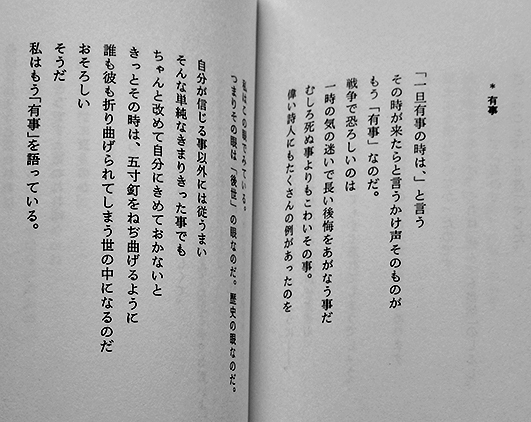 * 有事
「一旦有事の時は、」と言う
その時が来たらと言うかけ声そのものが
もう「有事」なのだ。
戦争で恐ろしいのは
一時の気の迷いで長い後悔をあがなう事だ
むしろ死ぬ事よりもこわいその事。
偉い詩人にもたくさんの例があったのを
私はこの眼でみている。
つまりその眼は「後世」の眼なのだ。歴史の眼なのだ。
自分が信じる事以外には従うまい
そんな単純なきまりきった事でも
ちゃんと改めて自分にきめておかないと
きっとその時は、五寸釘をねぢ曲げるように
誰も彼も折り曲げられてしまう世の中になるのだ
おそろしい
そうだ
私はもう「有事」を語っている。